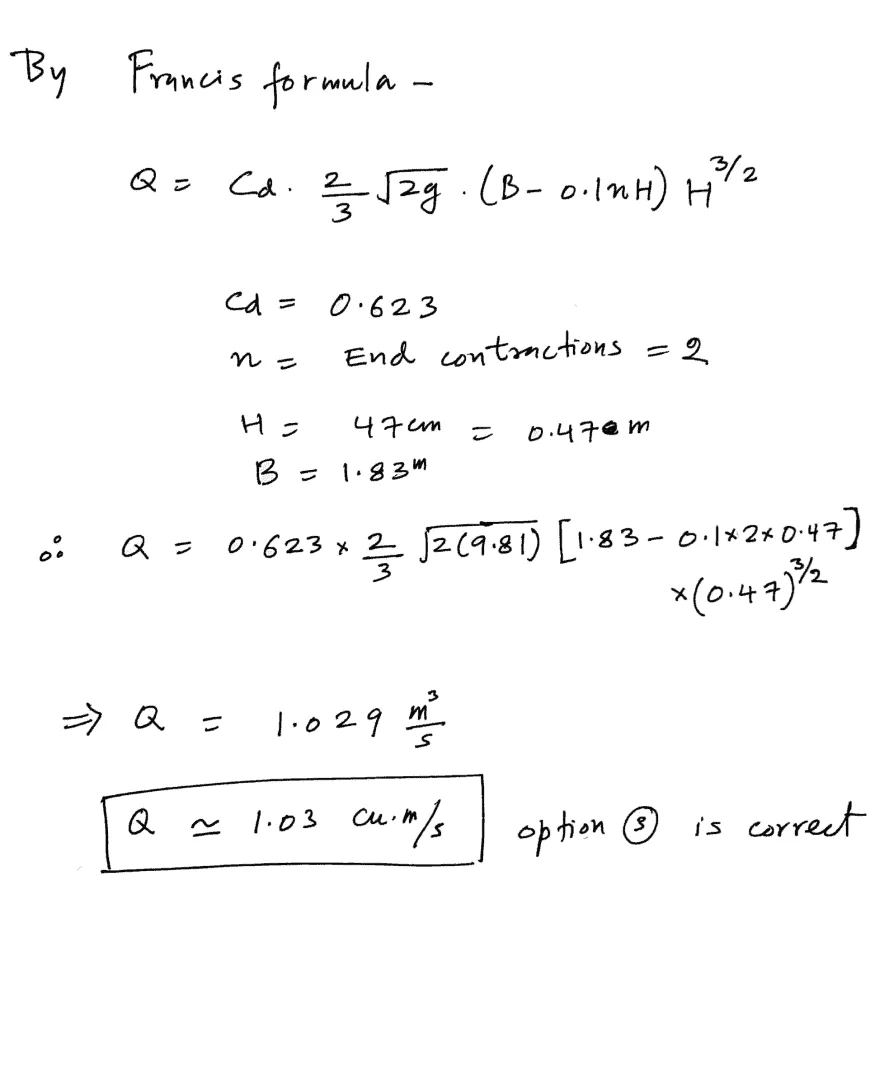 By Francis formula –
Q = Cd. 2/3 √2g . (B - 0.1nH) H^3/2
Cd = 0.623
n = End contractions = 2
H = 47cm = 0.47 m
B = 1.83m
∴ Q = 0.623 × 2/3 √2(9.81) [1.83 - 0.1×2×0.47]
×(0.47)^3/2
⇒ Q = 1.029 m³/s
Q ≃ 1.03 cu.m/s option ③ is correct